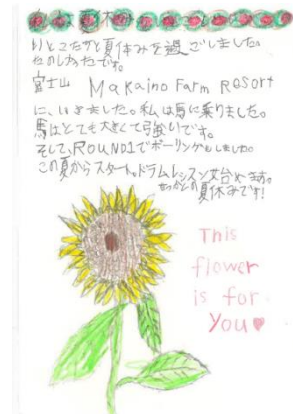 いとこたちと夏休みを過ごしました。
たのしかったです。
富士山 Makaino Farm Resort
に、いきました。私は馬に乗りました。
馬はとても大きくて強いです。
そして、ROUND1でボーリングもしました。
この夏からスタート。ドラムレッスン始めます。
夏休みです!
This
flower
is for
You♥